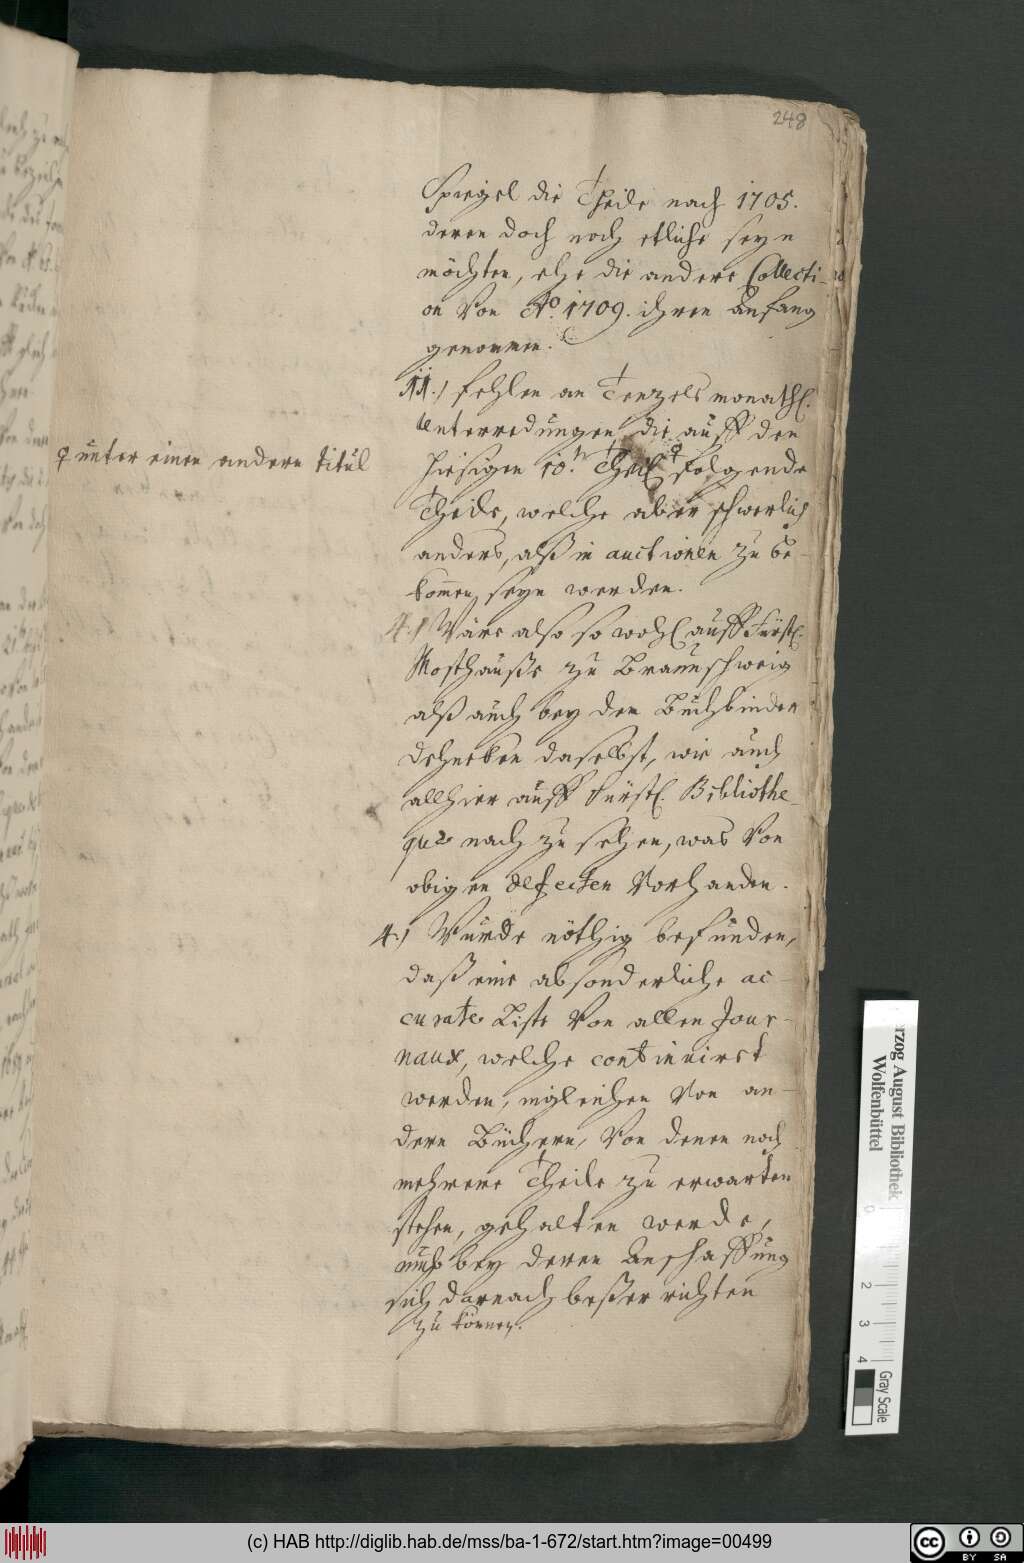 248
Spiegel die Theile nach 1705.
deren doch noch etliche seyn
möchten, ehe die andere Collecti-
on von Ao. 1709. ihren Anfang
genommen.
11.) fehlen an Tenzels monathl.
Unterredungen die auff den
hiesigen 10.ten Theil ♀ folgende
♀ unter einen andern titul
Theile, welche aber schwerlich
anders, alß in auctionen zu be-
kommen seyn werden.
4.) Wäre also so wohl auff Fürstl.
Mosthauße zu Braunschweig
alß auch bey dem Buchbinder
daselbst, wie auch
allhier auff Fürstl. Bibliothe-
que nach zu sehen, was von
obigen defecten vorhanden.
4.) Wurde nöthig befunden,
daß eine absonderliche ac-
curate Liste von allen Jour-
naux, welche continuiret
werden, ingleichen von an-
dern Büchern, von denen noch
mehrere Theile zu erwarten
stehen, gehalten werde,
umb bey deren Anschaffung
sich darnach beßer richten
zu können.
Herzog August Bibliothek
Wolfenbüttel
0
2
3
4
Gray Scale
(c) HAB http://diglib.hab.de/mss/ba-1-672/start.htm?image=00499
cc BY SA